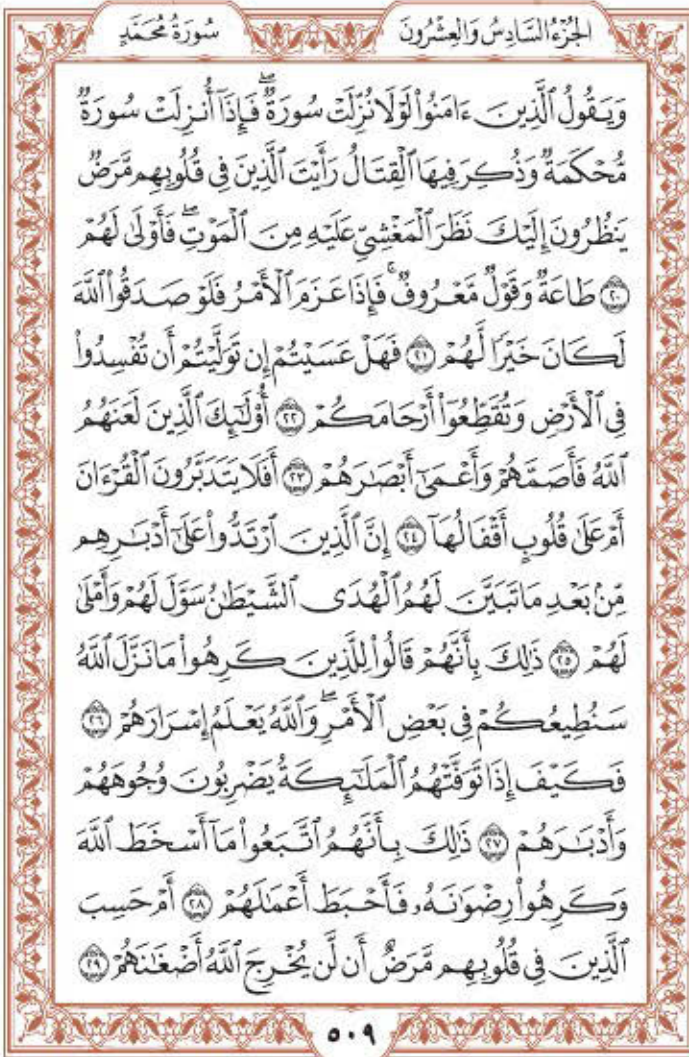 الجُزْءُ السَّادِسُ وَالعِشْرُونَ
سُورَةُ مُحَمَّدٍ
وَيَقُولُ ٱلَّذِينَ ءَامَنُوا۟ لَوْلَا نُزِّلَتْ سُورَةٌ ۖ فَإِذَآ أُنزِلَتْ سُورَةٌ
مُّحْكَمَةٌ وَذُكِرَ فِيهَا ٱلْقِتَالُ رَأَيْتَ ٱلَّذِينَ فِى قُلُوبِهِم مَّرَضٌ
يَنظُرُونَ إِلَيْكَ نَظَرَ ٱلْمَغْشِىِّ عَلَيْهِ مِنَ ٱلْمَوْتِ ۖ فَأَوْلَىٰ لَهُمْ
۝٢٠ طَاعَةٌ وَقَوْلٌ مَّعْرُوفٌ ۚ فَإِذَا عَزَمَ ٱلْأَمْرُ فَلَوْ صَدَقُوا۟ ٱللَّهَ
لَكَانَ خَيْرًا لَّهُمْ ۝٢١ فَهَلْ عَسَيْتُمْ إِن تَوَلَّيْتُمْ أَن تُفْسِدُوا۟
فِى ٱلْأَرْضِ وَتُقَطِّعُوٓا۟ أَرْحَامَكُمْ ۝٢٢ أُو۟لَـٰٓئِكَ ٱلَّذِينَ لَعَنَهُمُ
ٱللَّهُ فَأَصَمَّهُمْ وَأَعْمَىٰٓ أَبْصَـٰرَهُمْ ۝٢٣ أَفَلَا يَتَدَبَّرُونَ ٱلْقُرْءَانَ
أَمْ عَلَىٰ قُلُوبٍ أَقْفَالُهَآ ۝٢٤ إِنَّ ٱلَّذِينَ ٱرْتَدُّوا۟ عَلَىٰٓ أَدْبَـٰرِهِم
مِّنۢ بَعْدِ مَا تَبَيَّنَ لَهُمُ ٱلْهُدَى ٱلشَّيْطَـٰنُ سَوَّلَ لَهُمْ وَأَمْلَىٰ
لَهُمْ ۝٢٥ ذَٰلِكَ بِأَنَّهُمْ قَالُوا۟ لِلَّذِينَ كَرِهُوا۟ مَا نَزَّلَ ٱللَّهُ
سَنُطِيعُكُمْ فِى بَعْضِ ٱلْأَمْرِ ۖ وَٱللَّهُ يَعْلَمُ إِسْرَارَهُمْ ۝٢٦
فَكَيْفَ إِذَا تَوَفَّتْهُمُ ٱلْمَلَـٰٓئِكَةُ يَضْرِبُونَ وُجُوهَهُمْ
وَأَدْبَـٰرَهُمْ ۝٢٧ ذَٰلِكَ بِأَنَّهُمُ ٱتَّبَعُوا۟ مَآ أَسْخَطَ ٱللَّهَ
وَكَرِهُوا۟ رِضْوَٰنَهُۥ فَأَحْبَطَ أَعْمَـٰلَهُمْ ۝٢٨ أَمْ حَسِبَ
ٱلَّذِينَ فِى قُلُوبِهِم مَّرَضٌ أَن لَّن يُخْرِجَ ٱللَّهُ أَضْغَـٰنَهُمْ ۝٢٩
٥٠٩